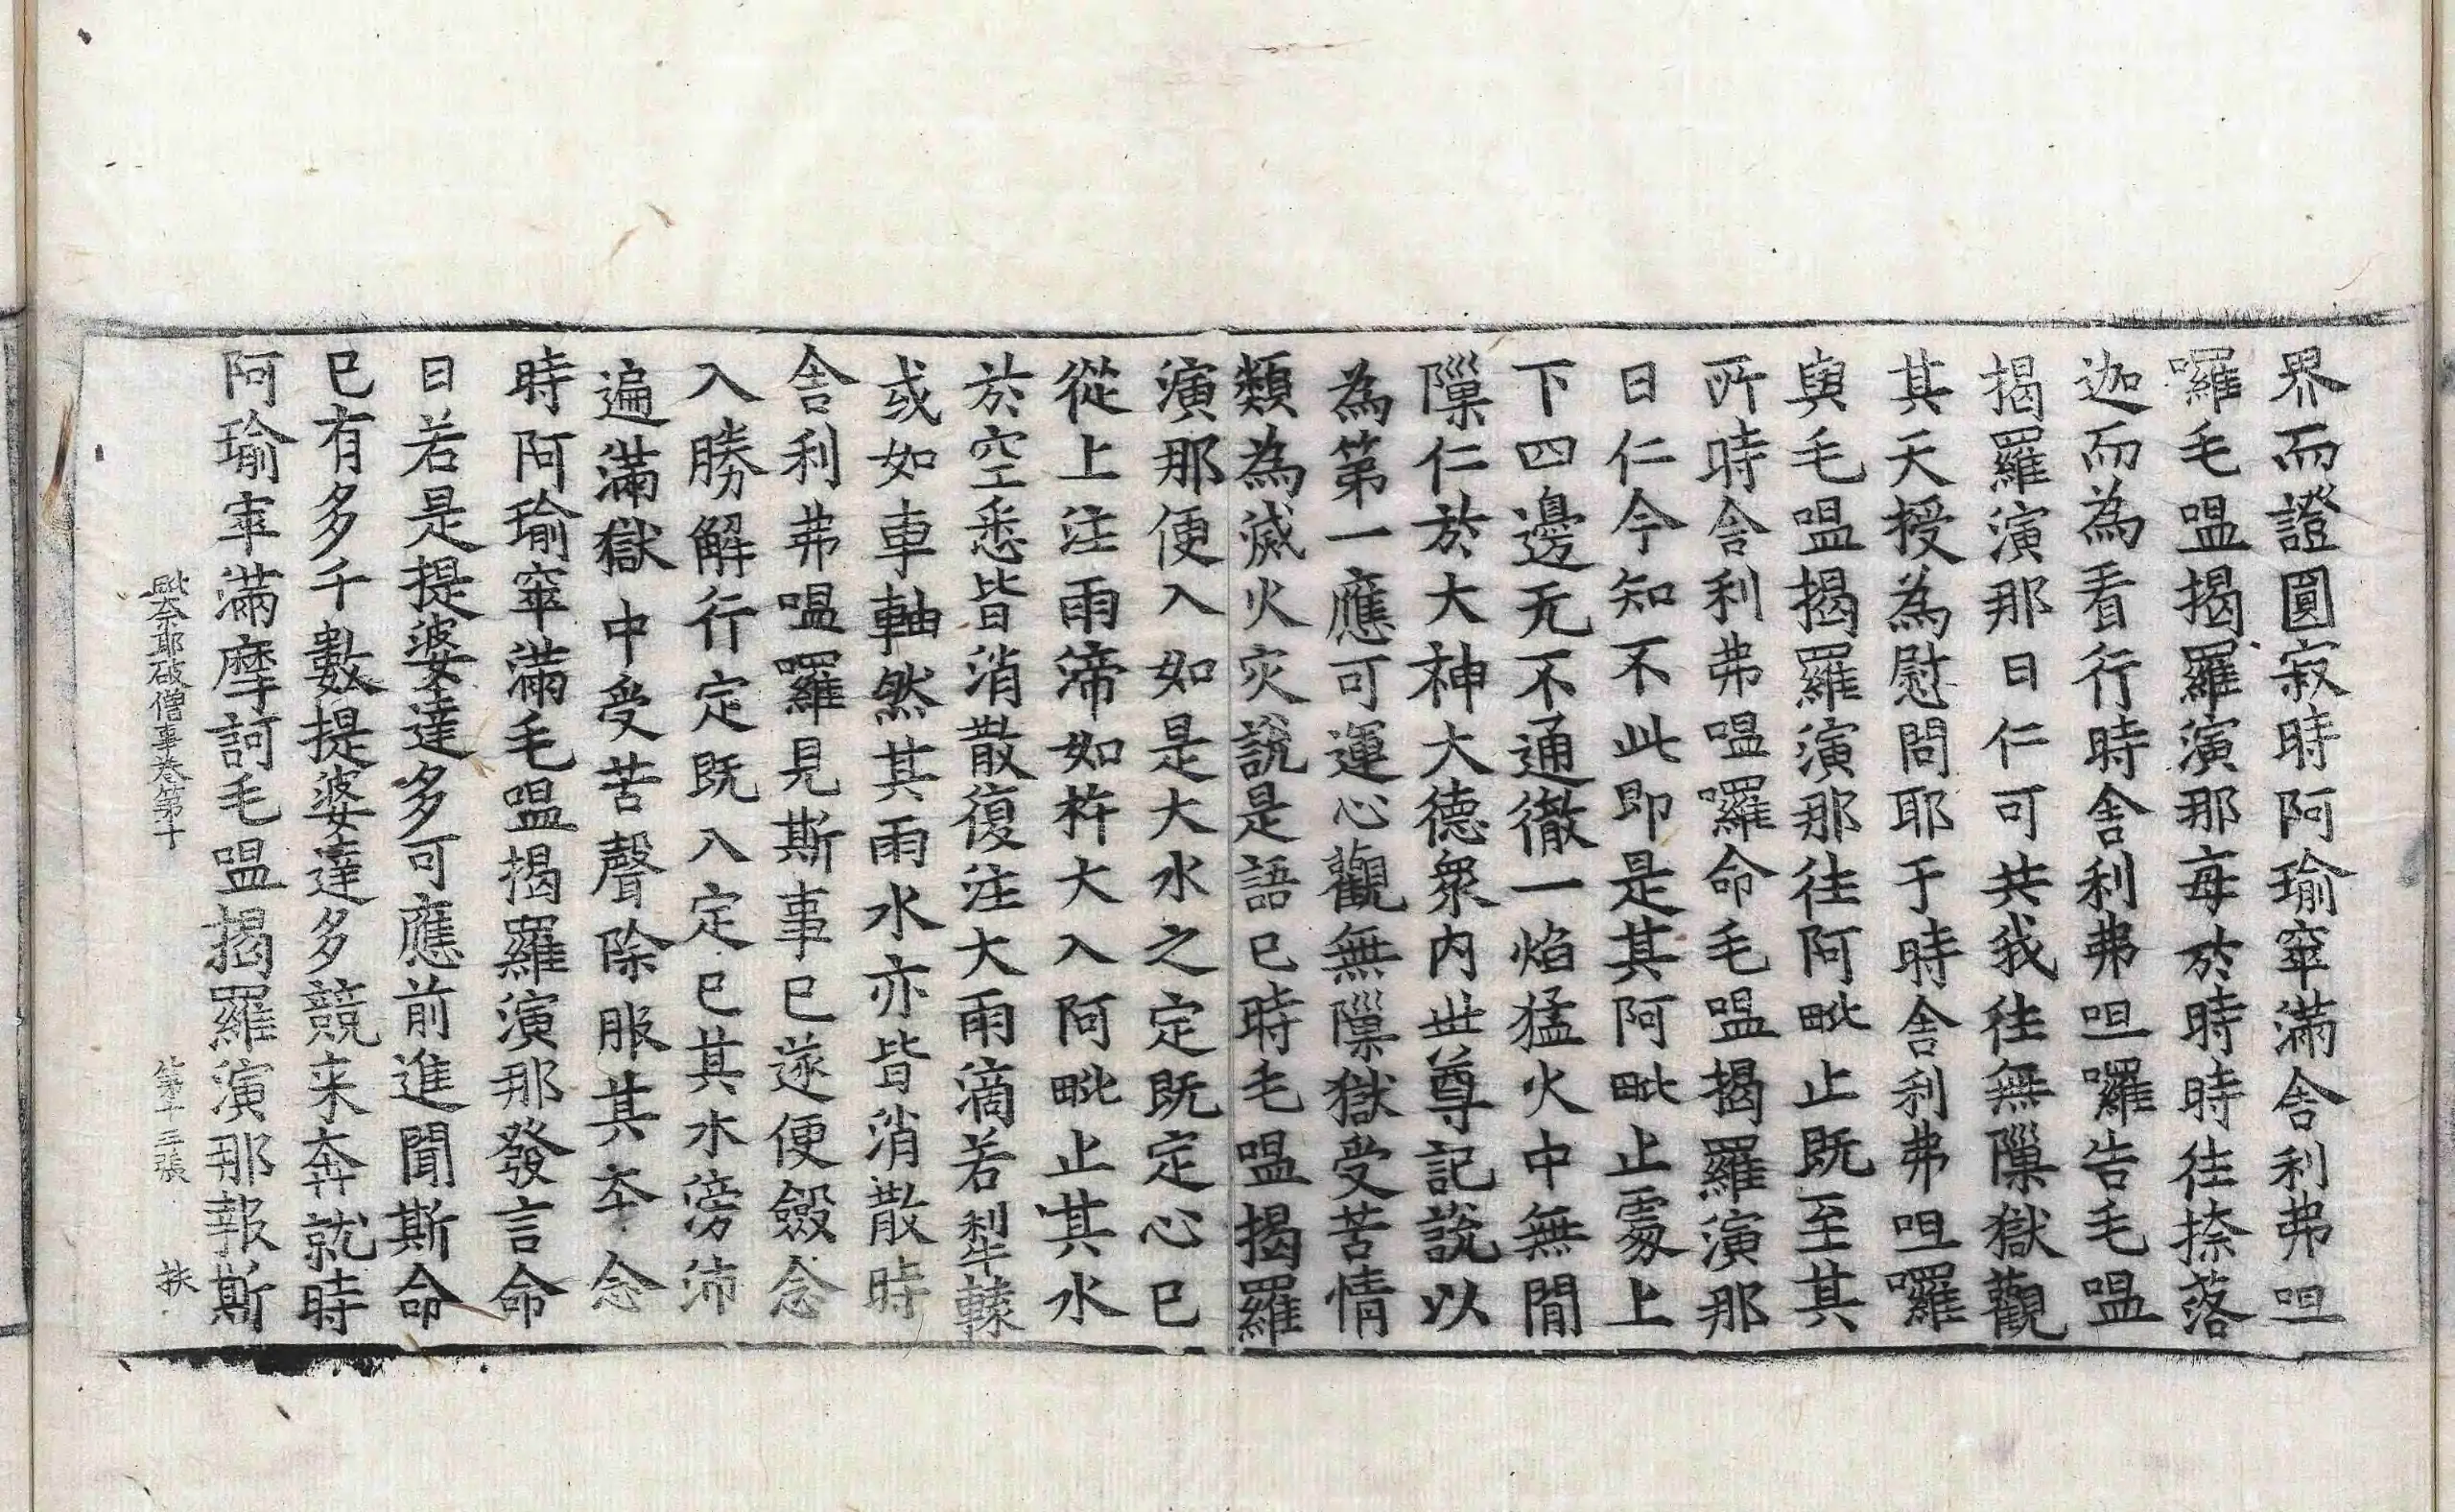 界而證圓寂時阿瑜窣滿舍利弗呾
囉毛嗢揭羅演那每於時時往捺落
迦而為看行時舍利弗呾囉告毛嗢
揭羅演那曰仁可共我往無隟獄觀
其天授為慰問耶于時舍利弗呾囉
與毛嗢揭羅演那往阿毗止既至其
所時舍利弗嗢囉命毛嗢揭羅演那
曰仁今知不此即是其阿毗止處上
下四邊无不通徹一焰猛火中無間
隟仁於大神大德眾內世尊記說以
為第一應可運心觀無隟獄受苦情
類為滅火灾說是語已時毛嗢揭羅
演那便入如是大水之定既定心已
從上注雨渧如杵大入阿毗止其水
於空悉皆消散復注大雨滴若犁轅
或如車軸然其雨水亦皆消散時
舍利弗嗢囉見斯事已遂便斂念
入勝解行定既入定已其水滂沛
遍滿獄中受苦聲除服其夲念
時阿瑜窣滿毛嗢揭羅演那發言命
曰若是提婆達多可應前進聞斯命
已有多千數提婆達多競来奔就時
阿瑜窣滿摩訶毛嗢揭羅演那報斯
奈耶破僧事卷第十 第十三張 扶